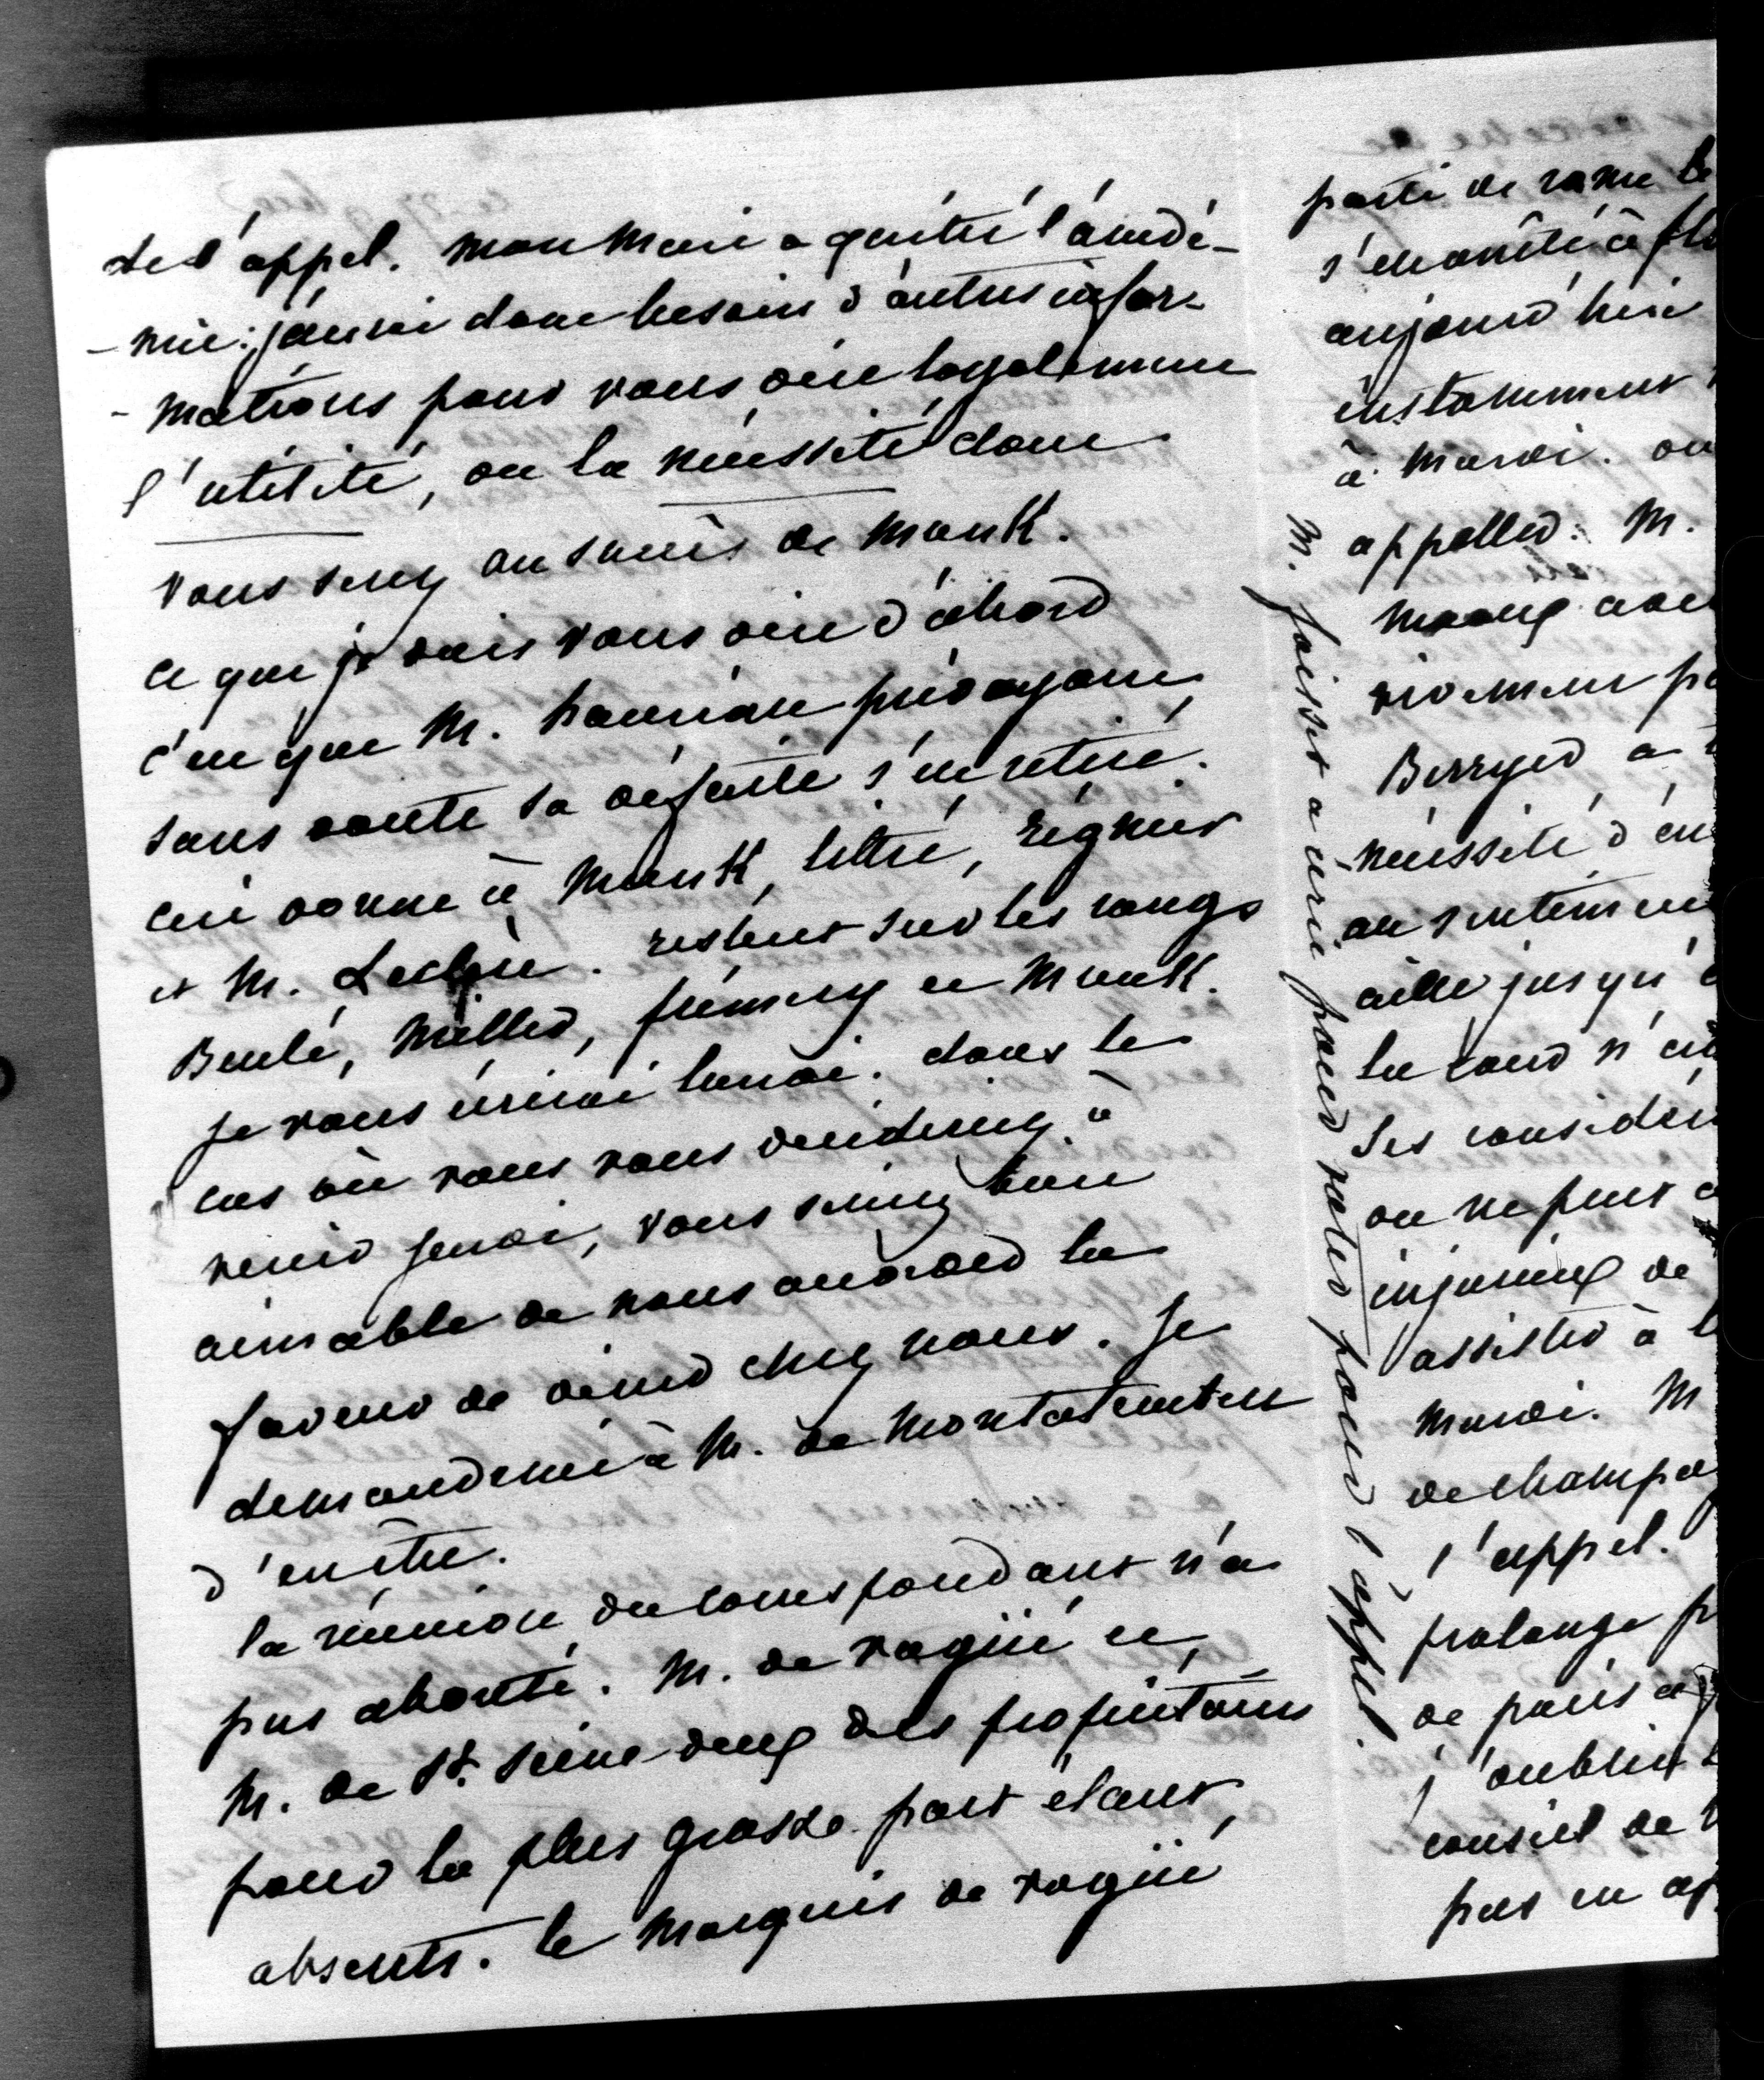 de l'appel. mon mari a quitté l'acadé-
-mie: j'aurai donc besoin d'autres infor-
-mations pour vous dire loyalement
l'utilité, ou la nécessité dont
vous serez au succès de
ce que je vais vous dire d'abord
c'est que M. prévoyant
sans doute sa défaite s'est retiré.
ceci donne à Littré, Régnier
et M. Leclerc. restent sur les rangs
Beulé, Miller, et
je vous écrirai lundi. dans le
cas où vous vous décideriez à
venir jeudi, vous seriez bien
aimable de nous accorder la
faveur de dîner chez nous. Je
demanderai à M. de Montalembert
d'en être.
la réunion du correspondant n'a
pas abouti. M. de Vogüé et
M. de St. Seine deux des propriétaires
pour la plus grosse part étant
absents. le Marquis de Vogüé
M. Foisset a écrit pour voter pour l'appel.
parti de rome le
s'est arrêté à
aujourd'hui
instamment
à mardi. on
appeller: M.
vivement
Berryer a
nécessité d'en
au sentiment
aille jusqu'
la cour n'
Ses considér
on ne peut
injurieux de
assister à
mardi. M
de champa
l'appel.
prolonge
de paris
j'oubliai
conseil de
pas en ap